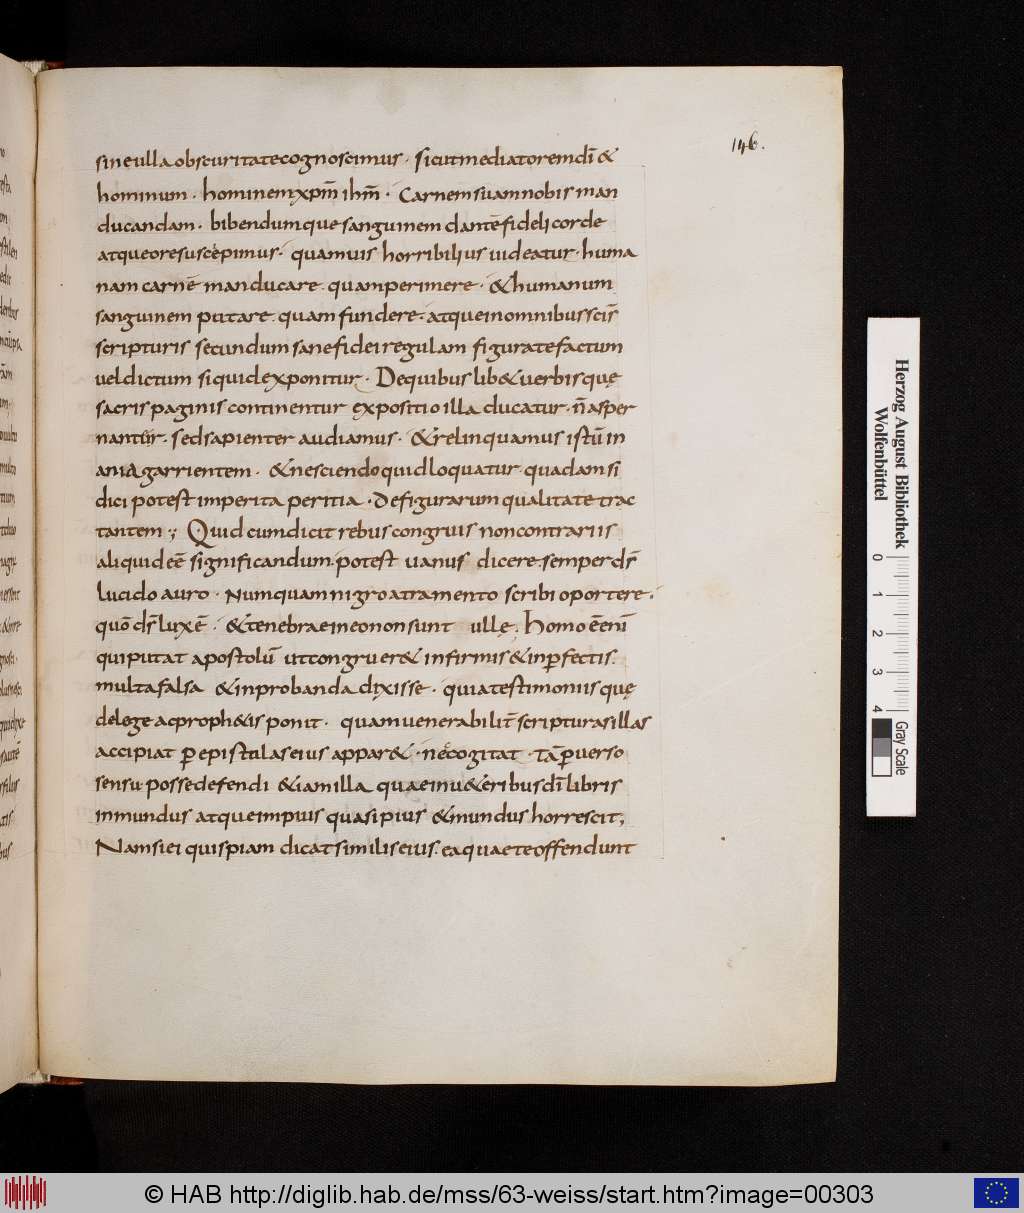 146.
sine ulla obscuritate cognoscimus · sicut mediatorem dī &
hominum · hominem xpm̄ ihm̄ · Carnem suam nobis man
ducandam · bibendumque sanguinem dantē fideli corde
atque ore suscepimus · quamuis horribilius uideatur · huma
nam carnē manducare · quam perimere · & humanum
sanguinem putare · quam fundere · atque in omnibus scīs
scripturis secundum sane fidei regulam figurate factum
uel dictum siquid exponitur · De quibus lib& uerbis quę
sacris paginis continentur expositio illa ducatur · n̄ asper
nantur · sed sapienter audiamus · & relinquamus istū in
ani& garrientem · & nesciendo quid loquatur · quadam si
dici potest imperita peritia · de figurarum qualitate trac
tantem ·; Quid cum dicit rebus congruis non contrariis
aliquid eē significandum · potest uanus dicere · semper dr̄
lucido auro · Numquam nigro atramento scribi oportere ·
quō dr̄ lux ē · & tenebrae in eo non sunt ullę · Homo ē enī
qui putat apostolū ut congruer& infirmis & inp̄fectis ·
multa falsa & inprobanda dixisse · quia testimoniis quę
de lege ac proph&is ponit · quam uenerabilit̄ scripturas illas
accipiat p̄ epistulas eius appar& · nec cogitat · tā p̄uerso
sensu posse defendi & iam illa quae in u&eribus dī libris
inmundus atque impius quasi pius & mundus horrescit;
Nam si ei quispiam dicat similis eius · ea quae te offendunt
Herzog August Bibliothek
Wolfenbüttel
0 1 2 3 4
Gray Scale
© HAB http://diglib.hab.de/mss/63-weiss/start.htm?image=00303